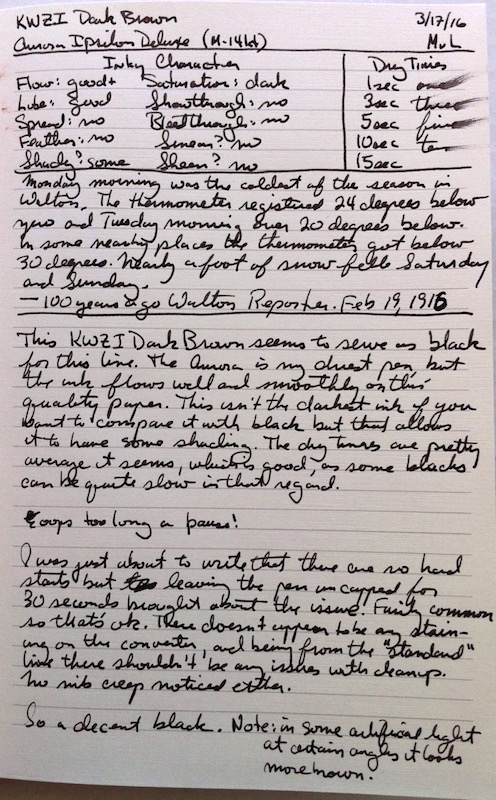 KWZI Dark Brown 3/17/16
Aurora Ipsilon Deluxe (M-14kt) MvL
Inky Character Dry Times
Flow: good+ Saturation: dark 1sec one
Lube: good Showthrough: no 3sec three
Spread: no Bleedthrough: no 5sec five
Feather: no Smear? no 10sec ten
Shady? some Sheen? no 15sec
Monday morning was the coldest of the season in
Walton. The thermometer registered 24 degrees below
zero and Tuesday morning over 20 degrees below.
In some nearby places the thermometer got below
30 degrees. Nearly a foot of snow fell Saturday
and Sunday.
— 100 years ago Walton Reporter. Feb 19, 1916
This KWZI Dark Brown seems to serve as black
for this line. The Aurora is my driest pen, but
the ink flows well and smoothly on this
quality paper. This isn't the darkest ink if you
want to compare it with black but that allows
it to have some shading. The dry times are pretty
average it seems, which is good, as some blacks
can be quite slow in that regard.
oops too long a pause!
I was just about to write that there are no hard
starts but leaving the pen uncapped for
30 seconds brought about the issue. Fairly common
so that's ok. There doesn't appear to be any stain-
ing on the converter, and being from the "standard"
line there shouldn't be any issues with cleanup.
No nib creep noticed either.
So a decent black. Note: in some artificial light
at certain angles it looks
more brown.